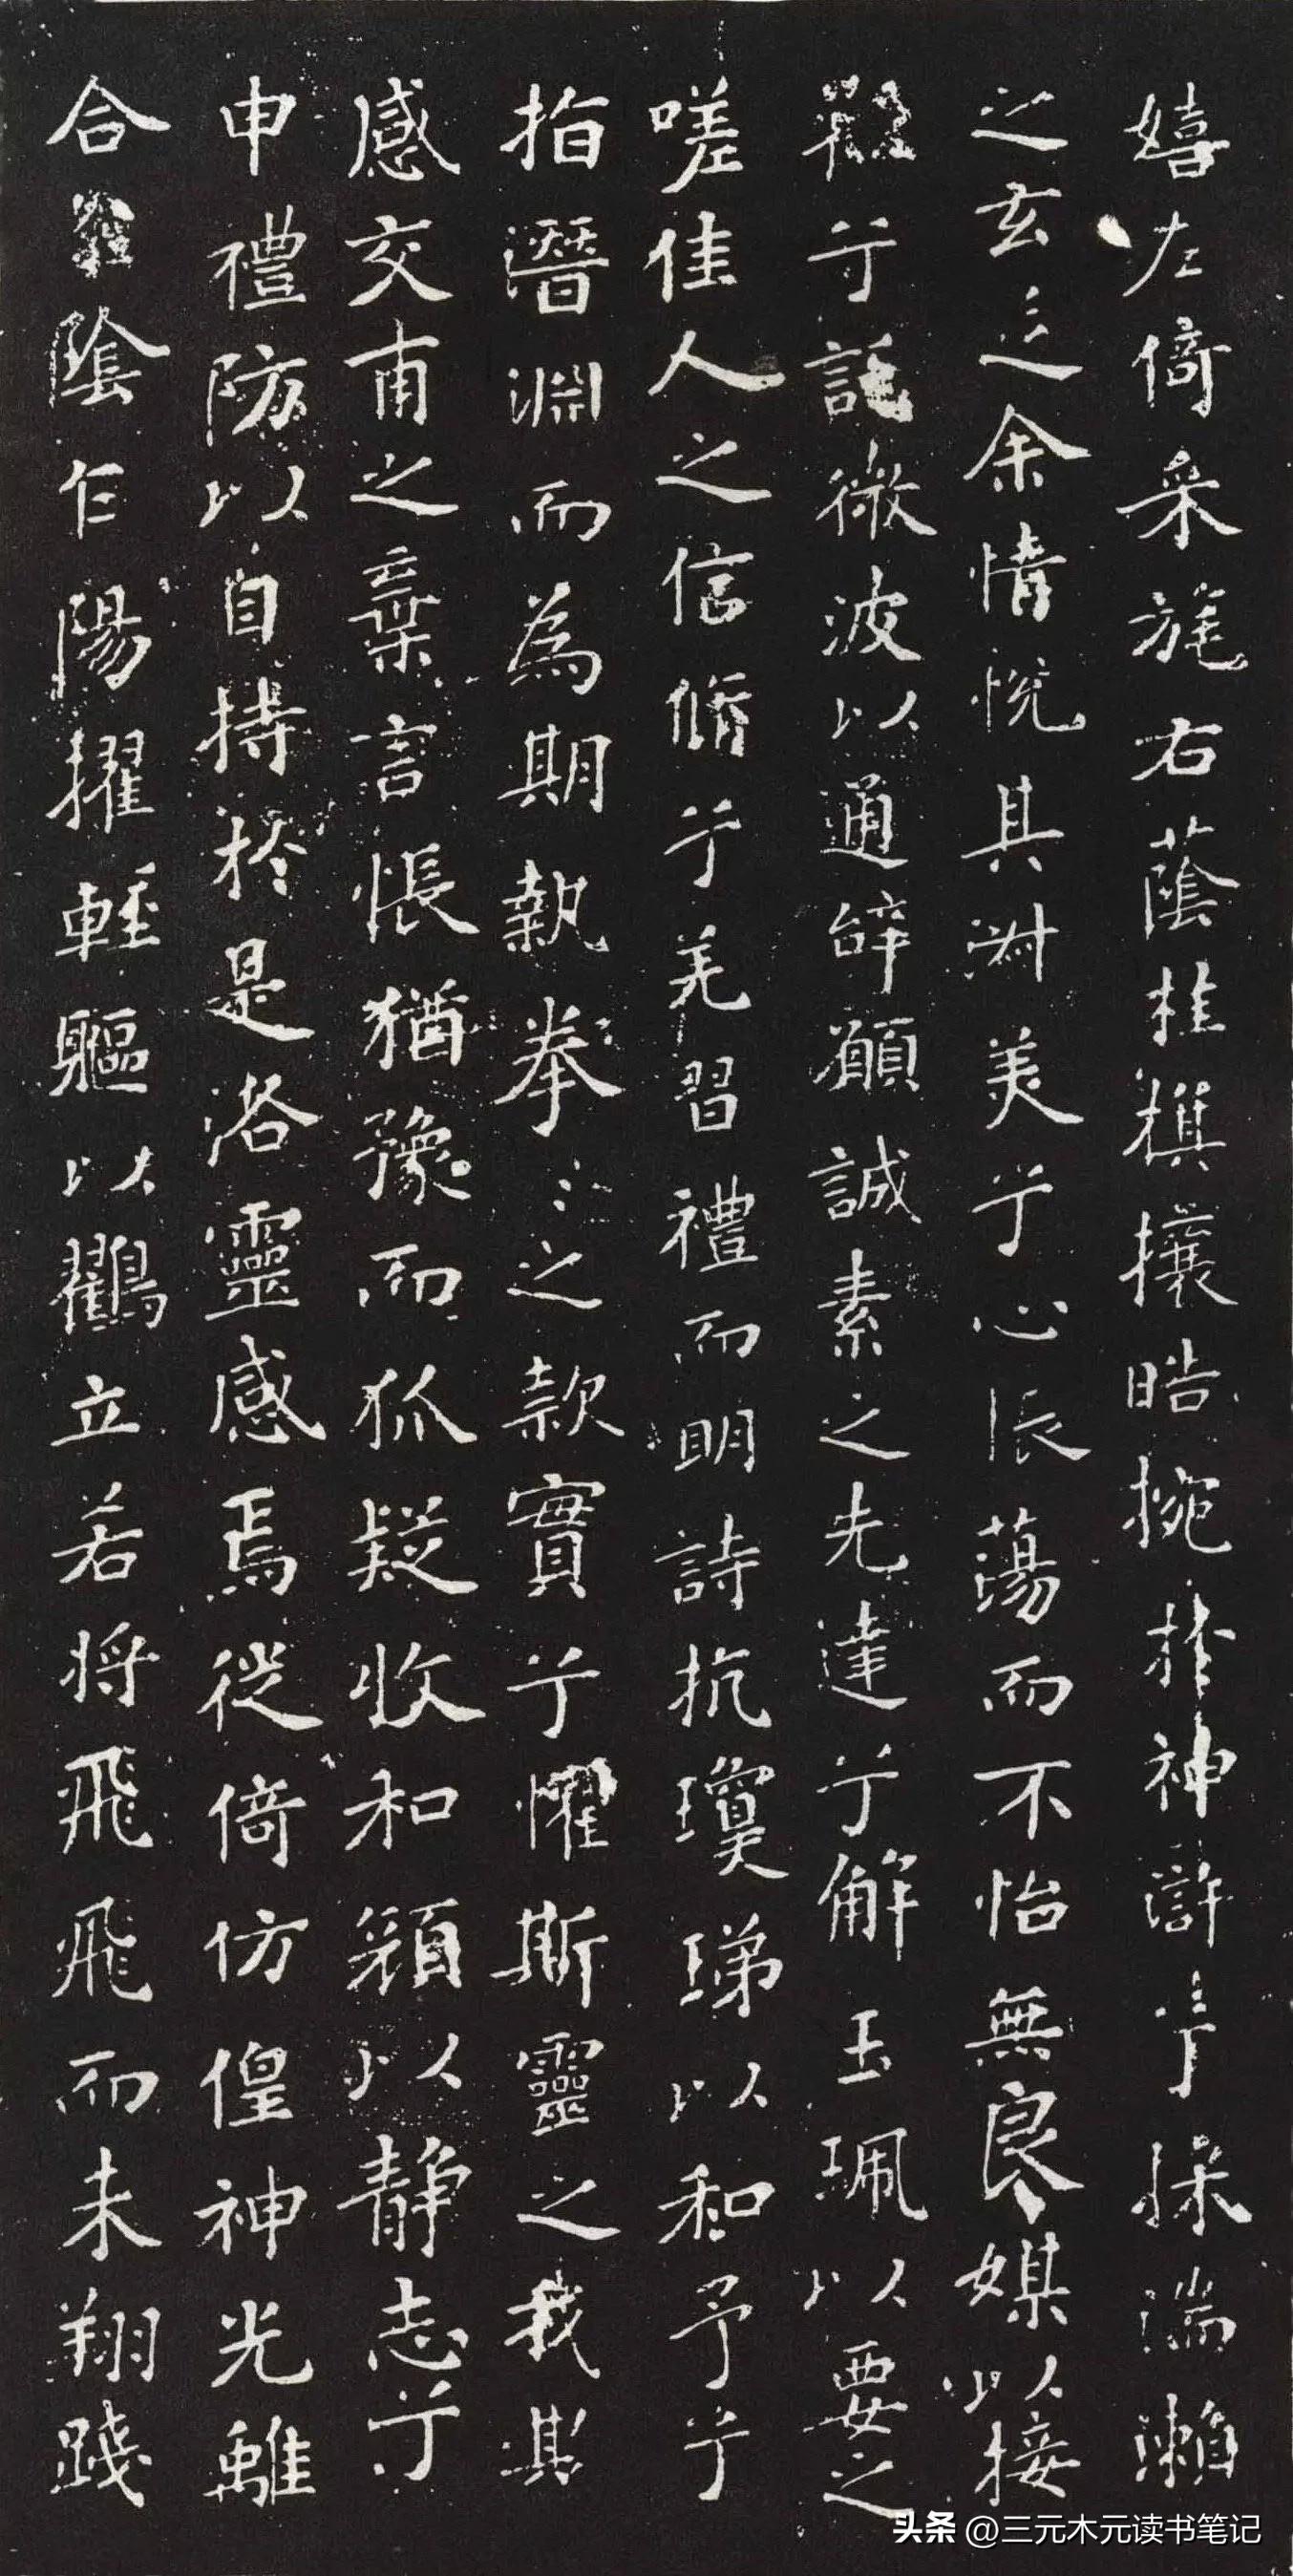 嬉左倚采旄右蔭桂旗攘皓捥於神滸兮採湍瀨
之玄芝余情悅其淑美兮心振蕩而不怡無良媒以接
懽兮託微波以通辭願誠素之先達兮解玉珮以要之
嗟佳人之信脩兮羌習禮而明詩抗瓊珶以和予兮
指潛淵而為期執拳〻之款實兮懼斯靈之我欺
感交甫之棄言悵猶豫而狐疑收和顏以靜志兮
申禮防以自持於是洛靈感焉徙倚仿偟神光離
合陰乍陽擢輕軀以鶴立若將飛飛而未翔踐
头条 @三元木元读书笔记